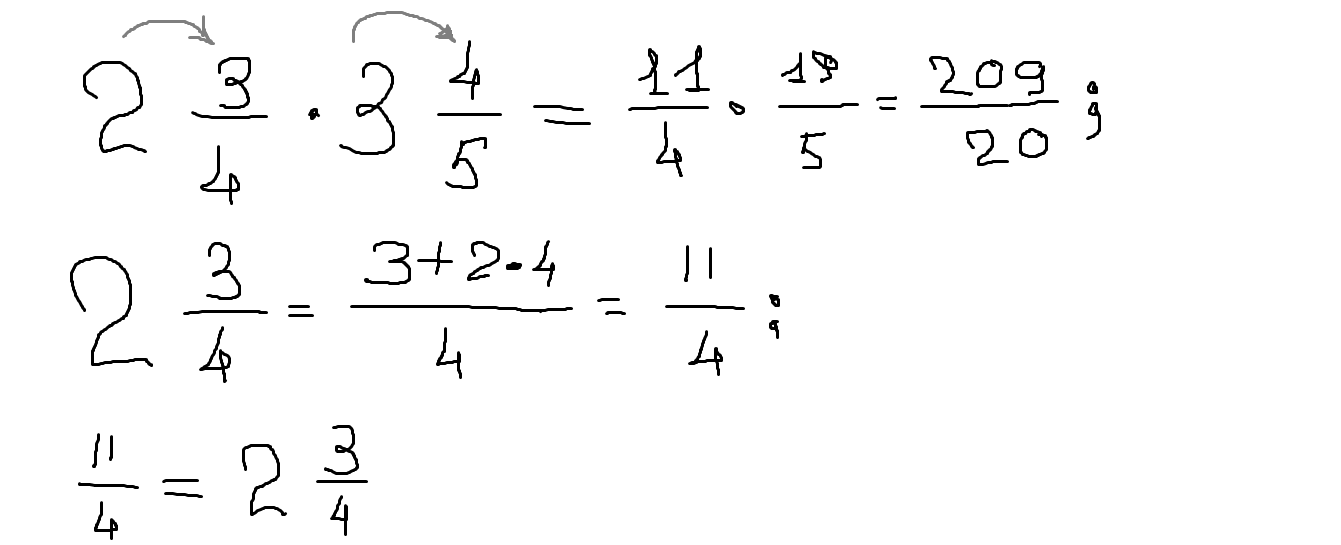 2 3/4 · 3 4/5 = 11/4 · 19/5 = 209/20 ;
2 3/4 = (3+2·4)/4 = 11/4 ;
11/4 = 2 3/4